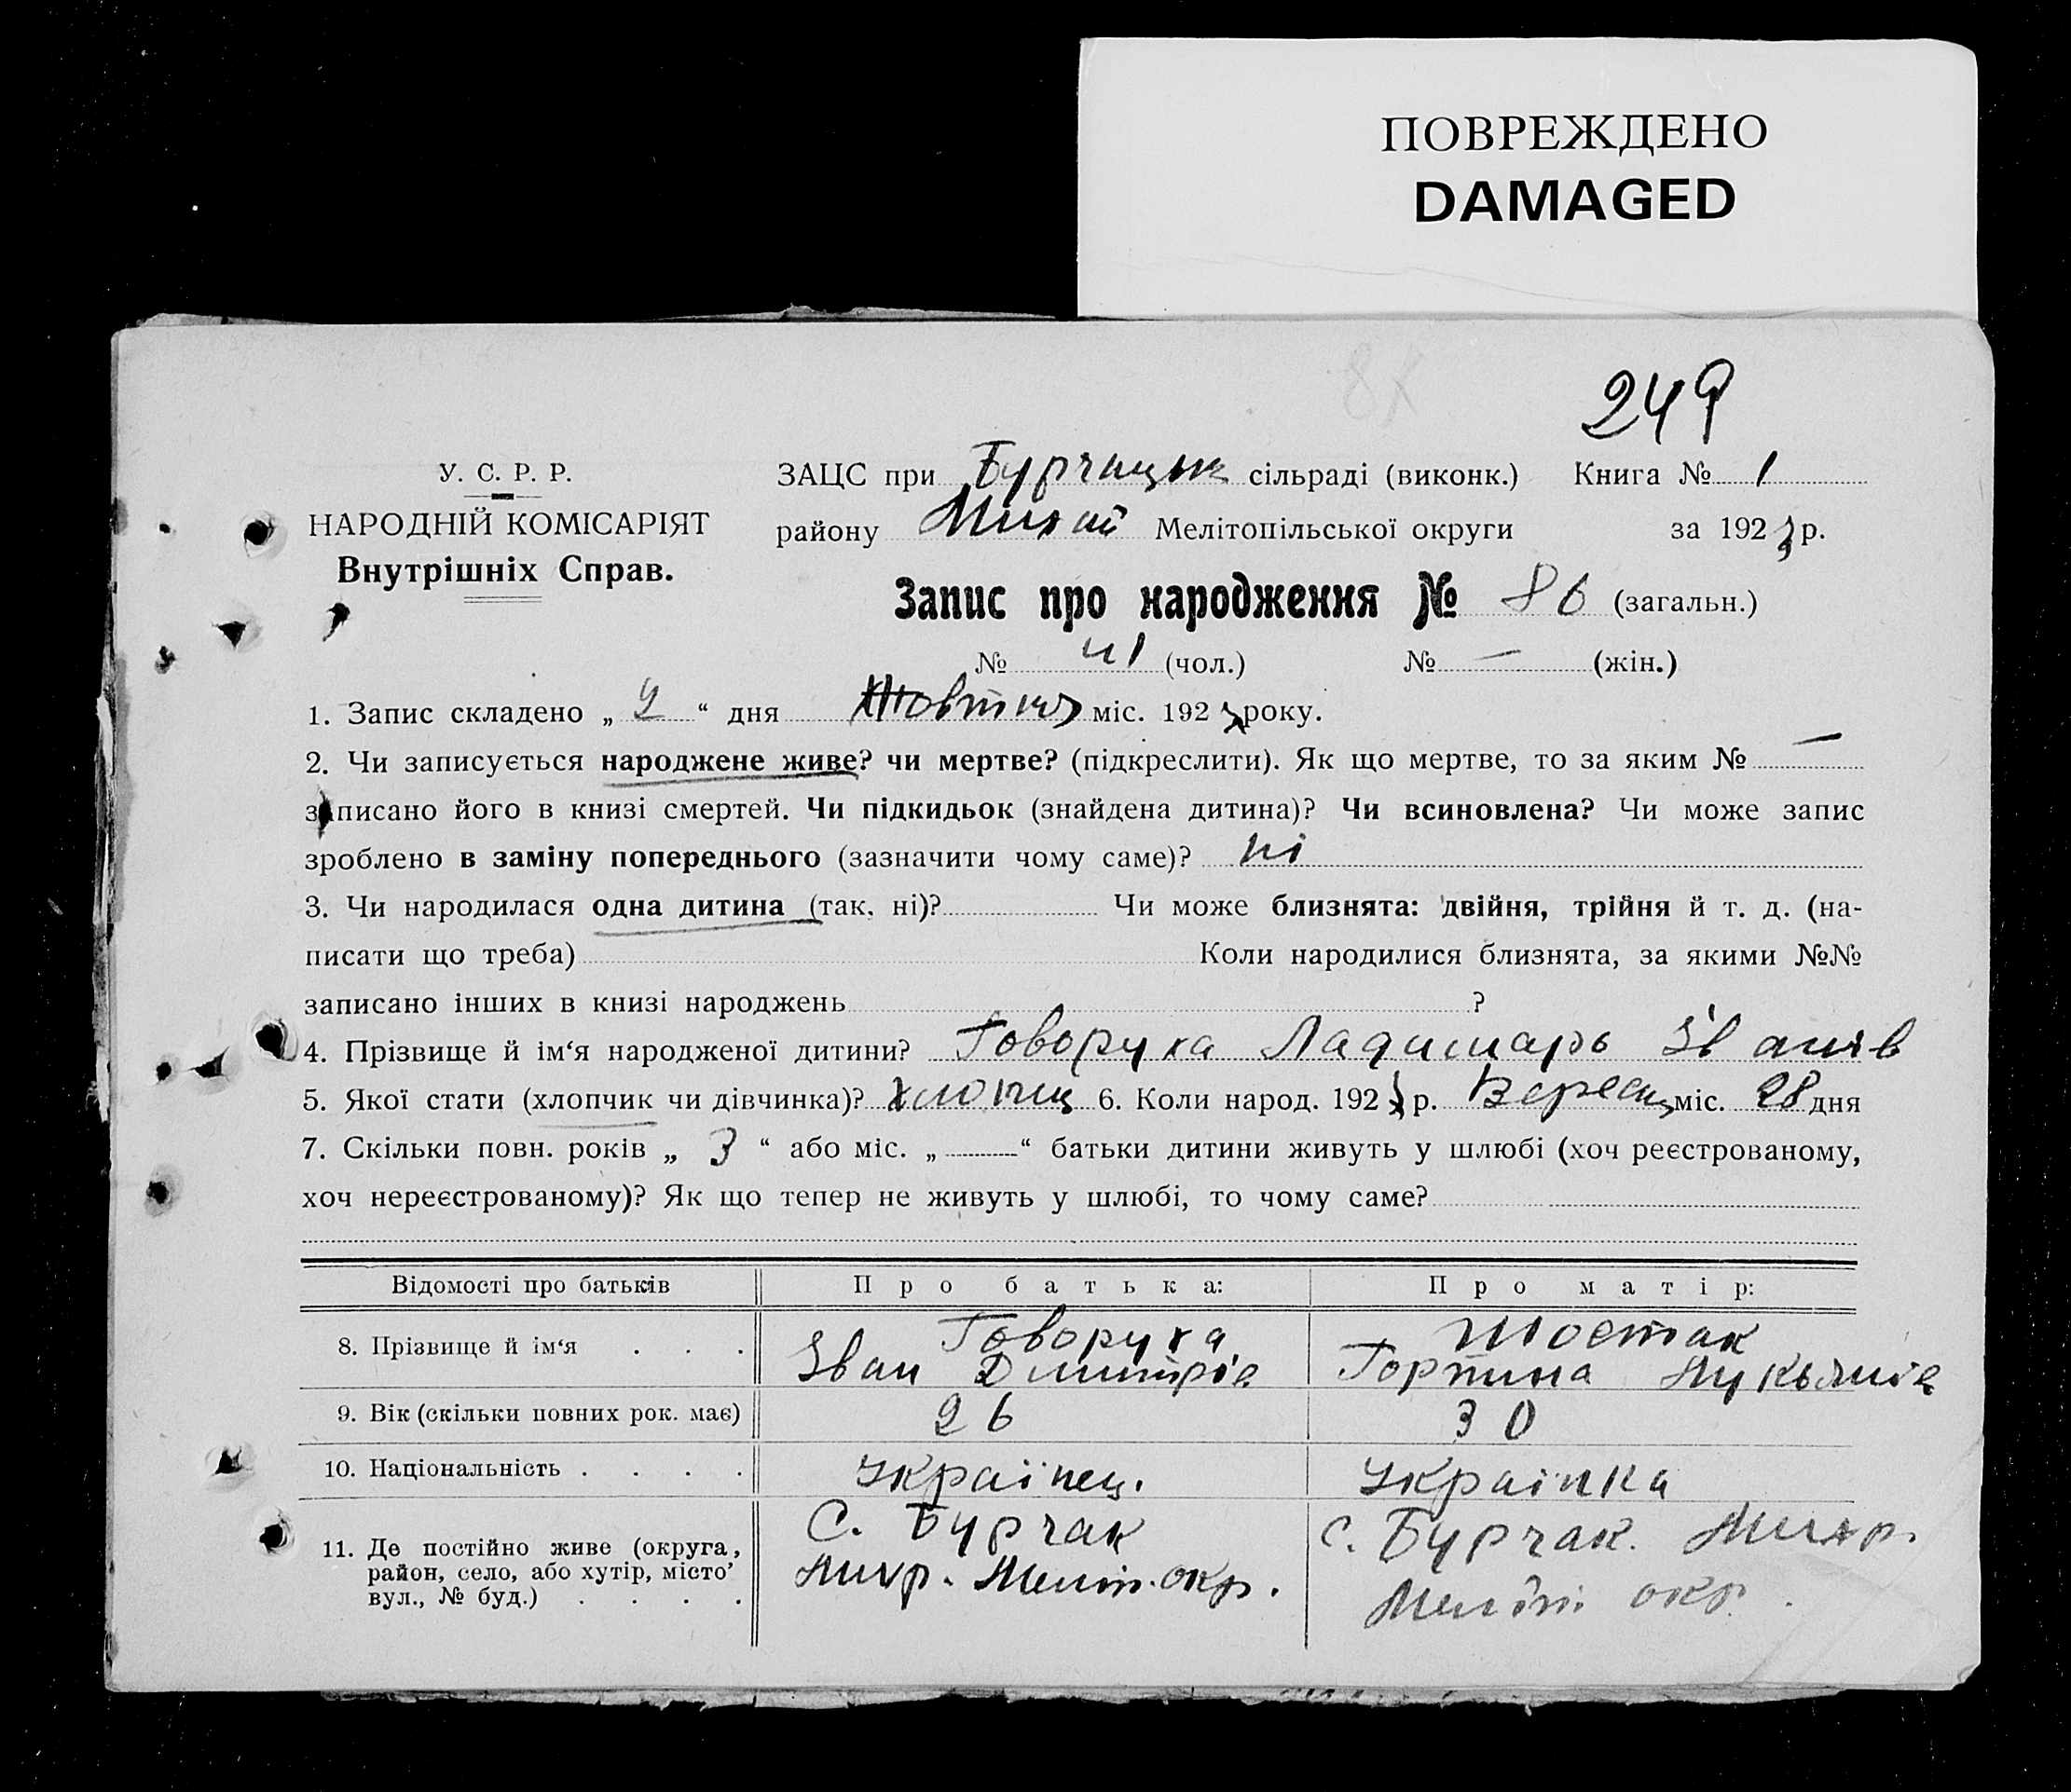 ПОВРЕЖДЕНО
DAMAGED
249
У. С. Р. Р.
НАРОДНІЙ КОМІСАРІЯТ
Внутрішніх Справ.
ЗАЦС при Бурчацьк сільраді (виконк.) Книга № 1
району Мих ай Мелітопільської округи за 1923 р.
Запис про народження № 86 (загальн.)
№ 41 (чол.) № — (жін.)
1. Запис складено „ 2 “ дня Жовтня міс. 192 року.
2. Чи записується народжене живе? чи мертве? (підкреслити). Як що мертве, то за яким № —
записано його в книзі смертей. Чи підкидьок (знайдена дитина)? Чи всиновлена? Чи може запис
зроблено в заміну попереднього (зазначити чому саме)? ні
3. Чи народилася одна дитина (так, ні)? Чи може близнята: двійня, трійня й т. д. (на-
писати що треба) Коли народилися близнята, за якими №№
записано інших в книзі народжень ?
4. Прізвище й ім‘я народженої дитини? Говоруха Ладимарь Іванів
5. Якої стати (хлопчик чи дівчинка)? хлопец 6. Коли народ. 192 р. Вересц міс. 28 дня
7. Скільки повн. років „ 3 “ або міс. „ — “ батьки дитини живуть у шлюбі (хоч реєстрованому,
хоч нереєстрованому)? Як що тепер не живуть у шлюбі, то чому саме?
Відомості про батьків Про батька: Про матір:
8. Прізвище й ім‘я . . . Говоруха Шостак
Іван Дмитрів Горпина Лукьянів
9. Вік (скільки повних рок. має) 26 30
10. Національність . . . . Українец. Українка
11. Де постійно живе (округа, район, село, або хутір, місто’ вул., № буд.) . . . . С. Бурчак С. Бурчак. Мих р.
Мих р. Меліт. окр. Меліт. окр.